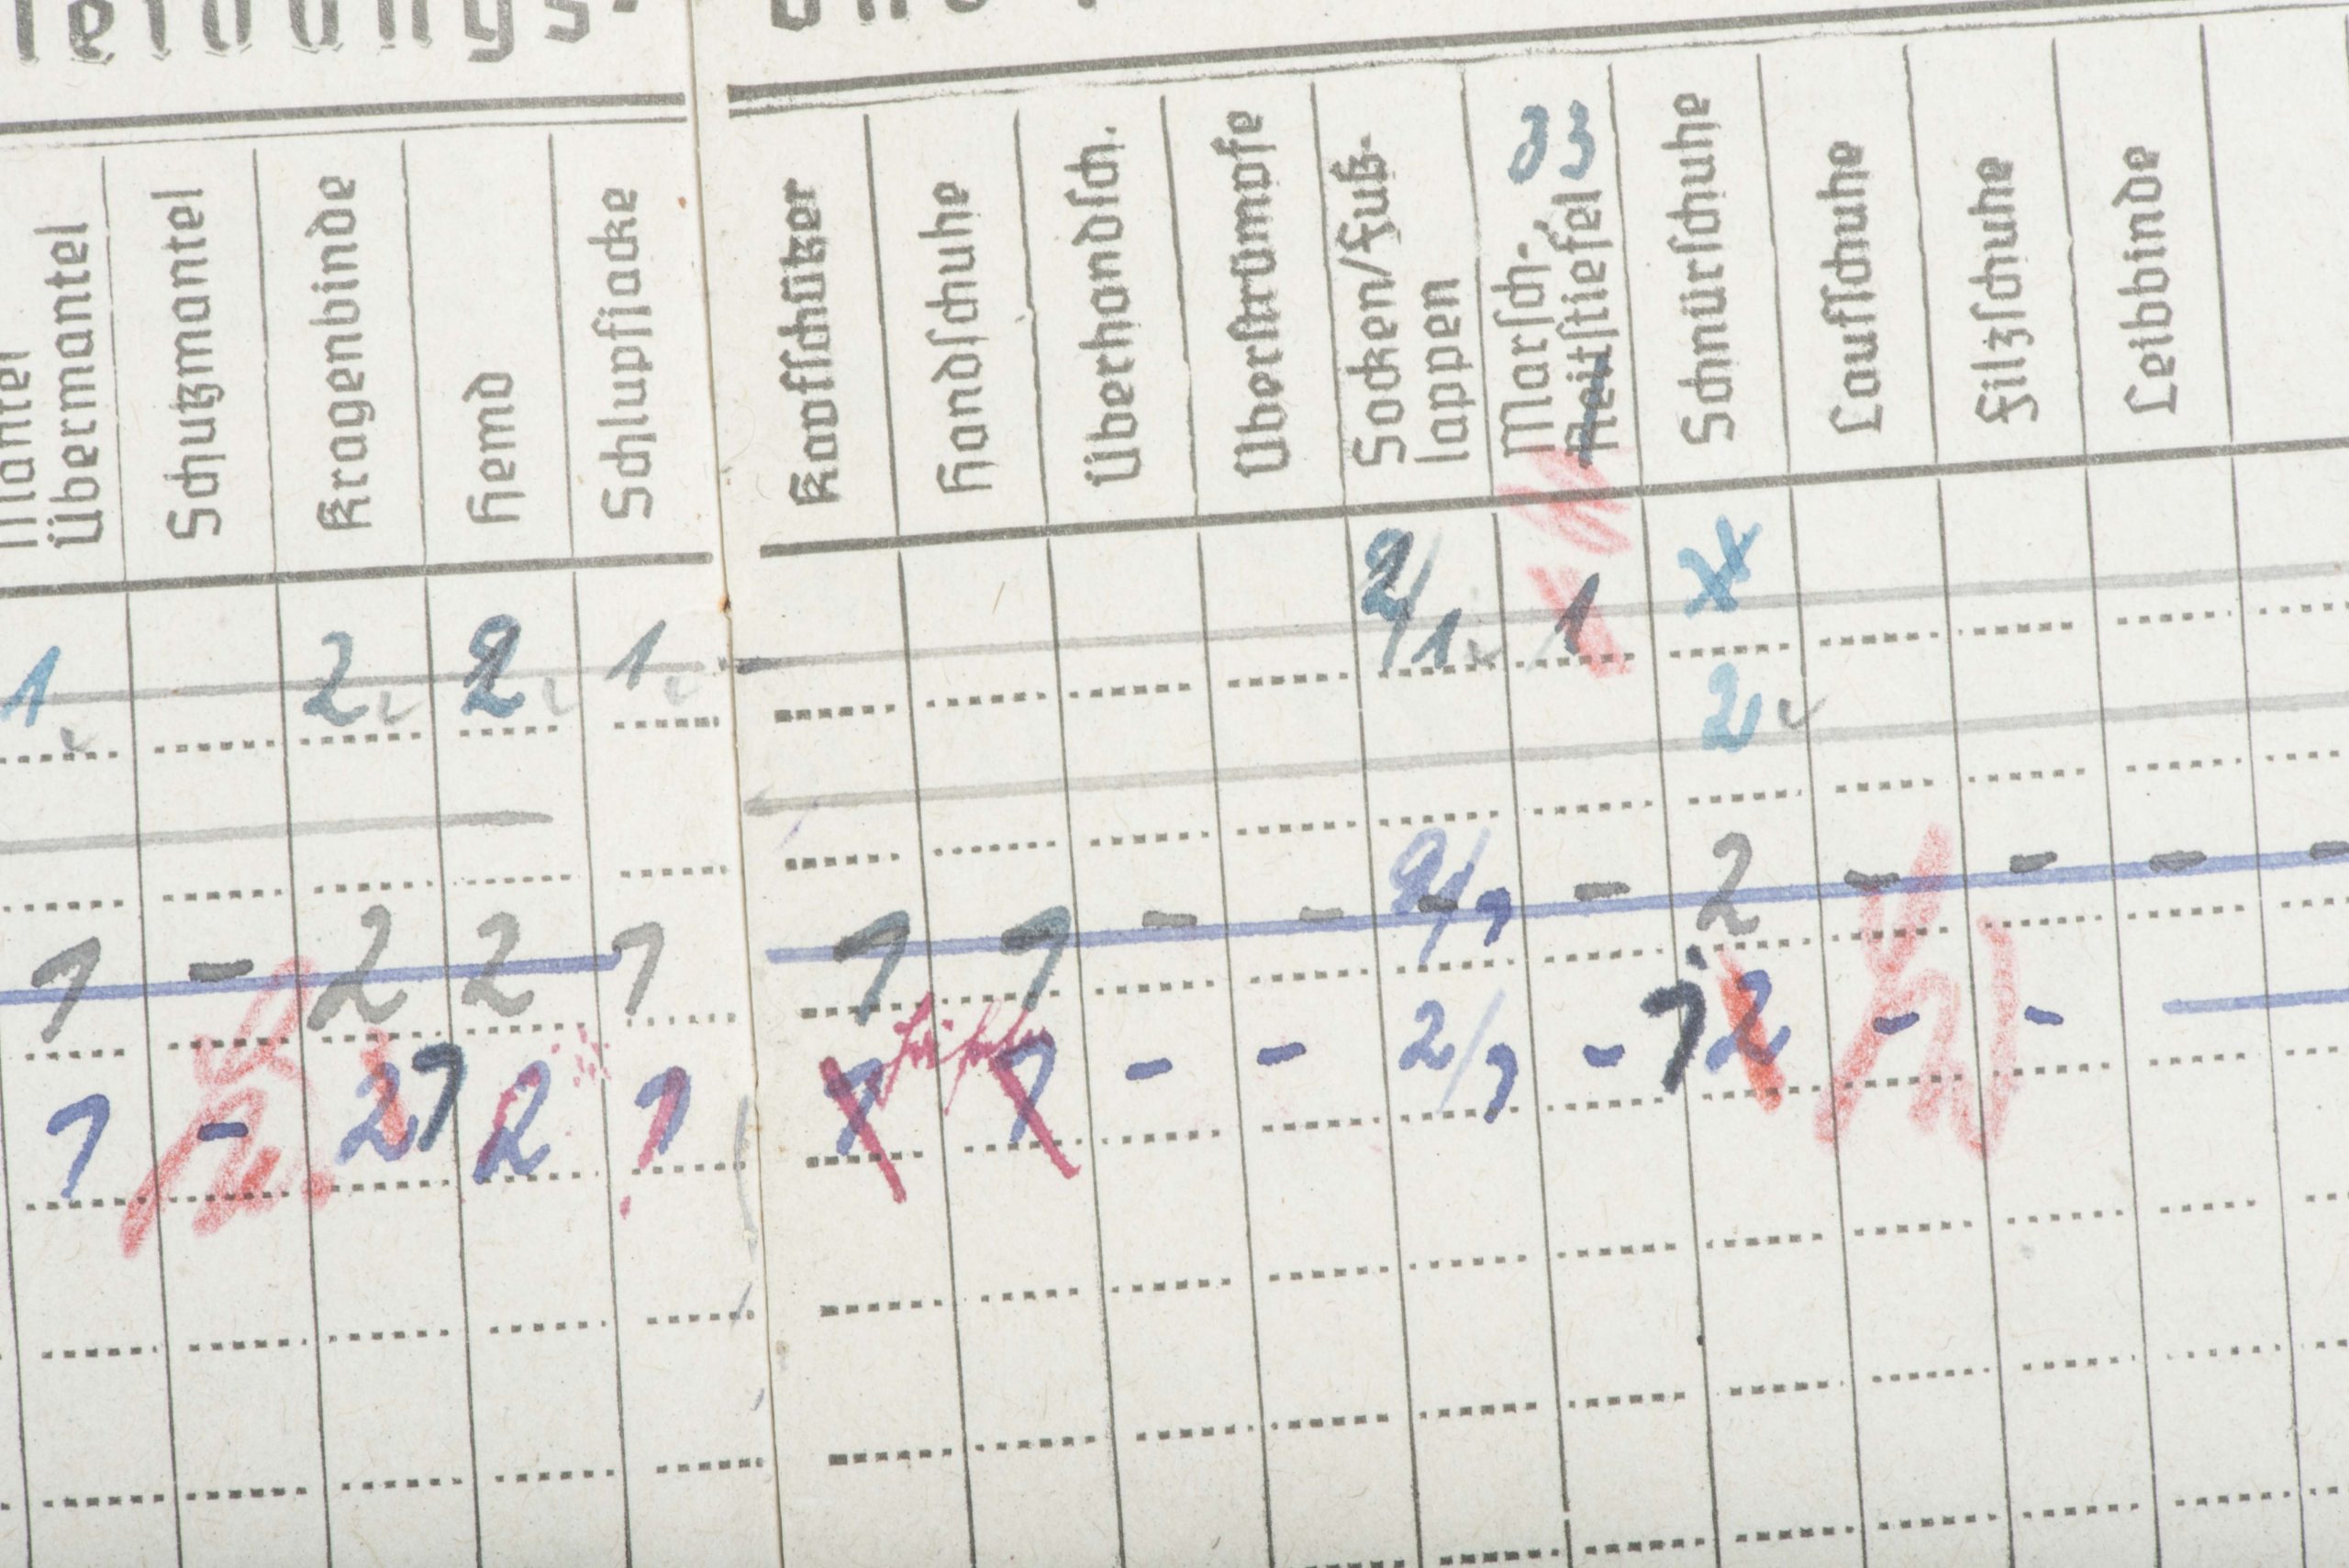 Übermantel
Schutzmantel
Kragenbinde
Hemd
Schlupfjacke
Kopfschützer
Handschuhe
Überhandsch.
Überstrümpfe
Socken/Fuß-
lappen
Marsch-,
Reitstiefel
Schnürschuhe
Laufschuhe
Filzschuhe
Leibbinde
1 2 2 1 2/1 1
2
1 - 2 2 1 1 1 - - 2/1 - 2 - - - -
1 - 2 1 2 1 1 1 - - 2/1 - 1 2 - -